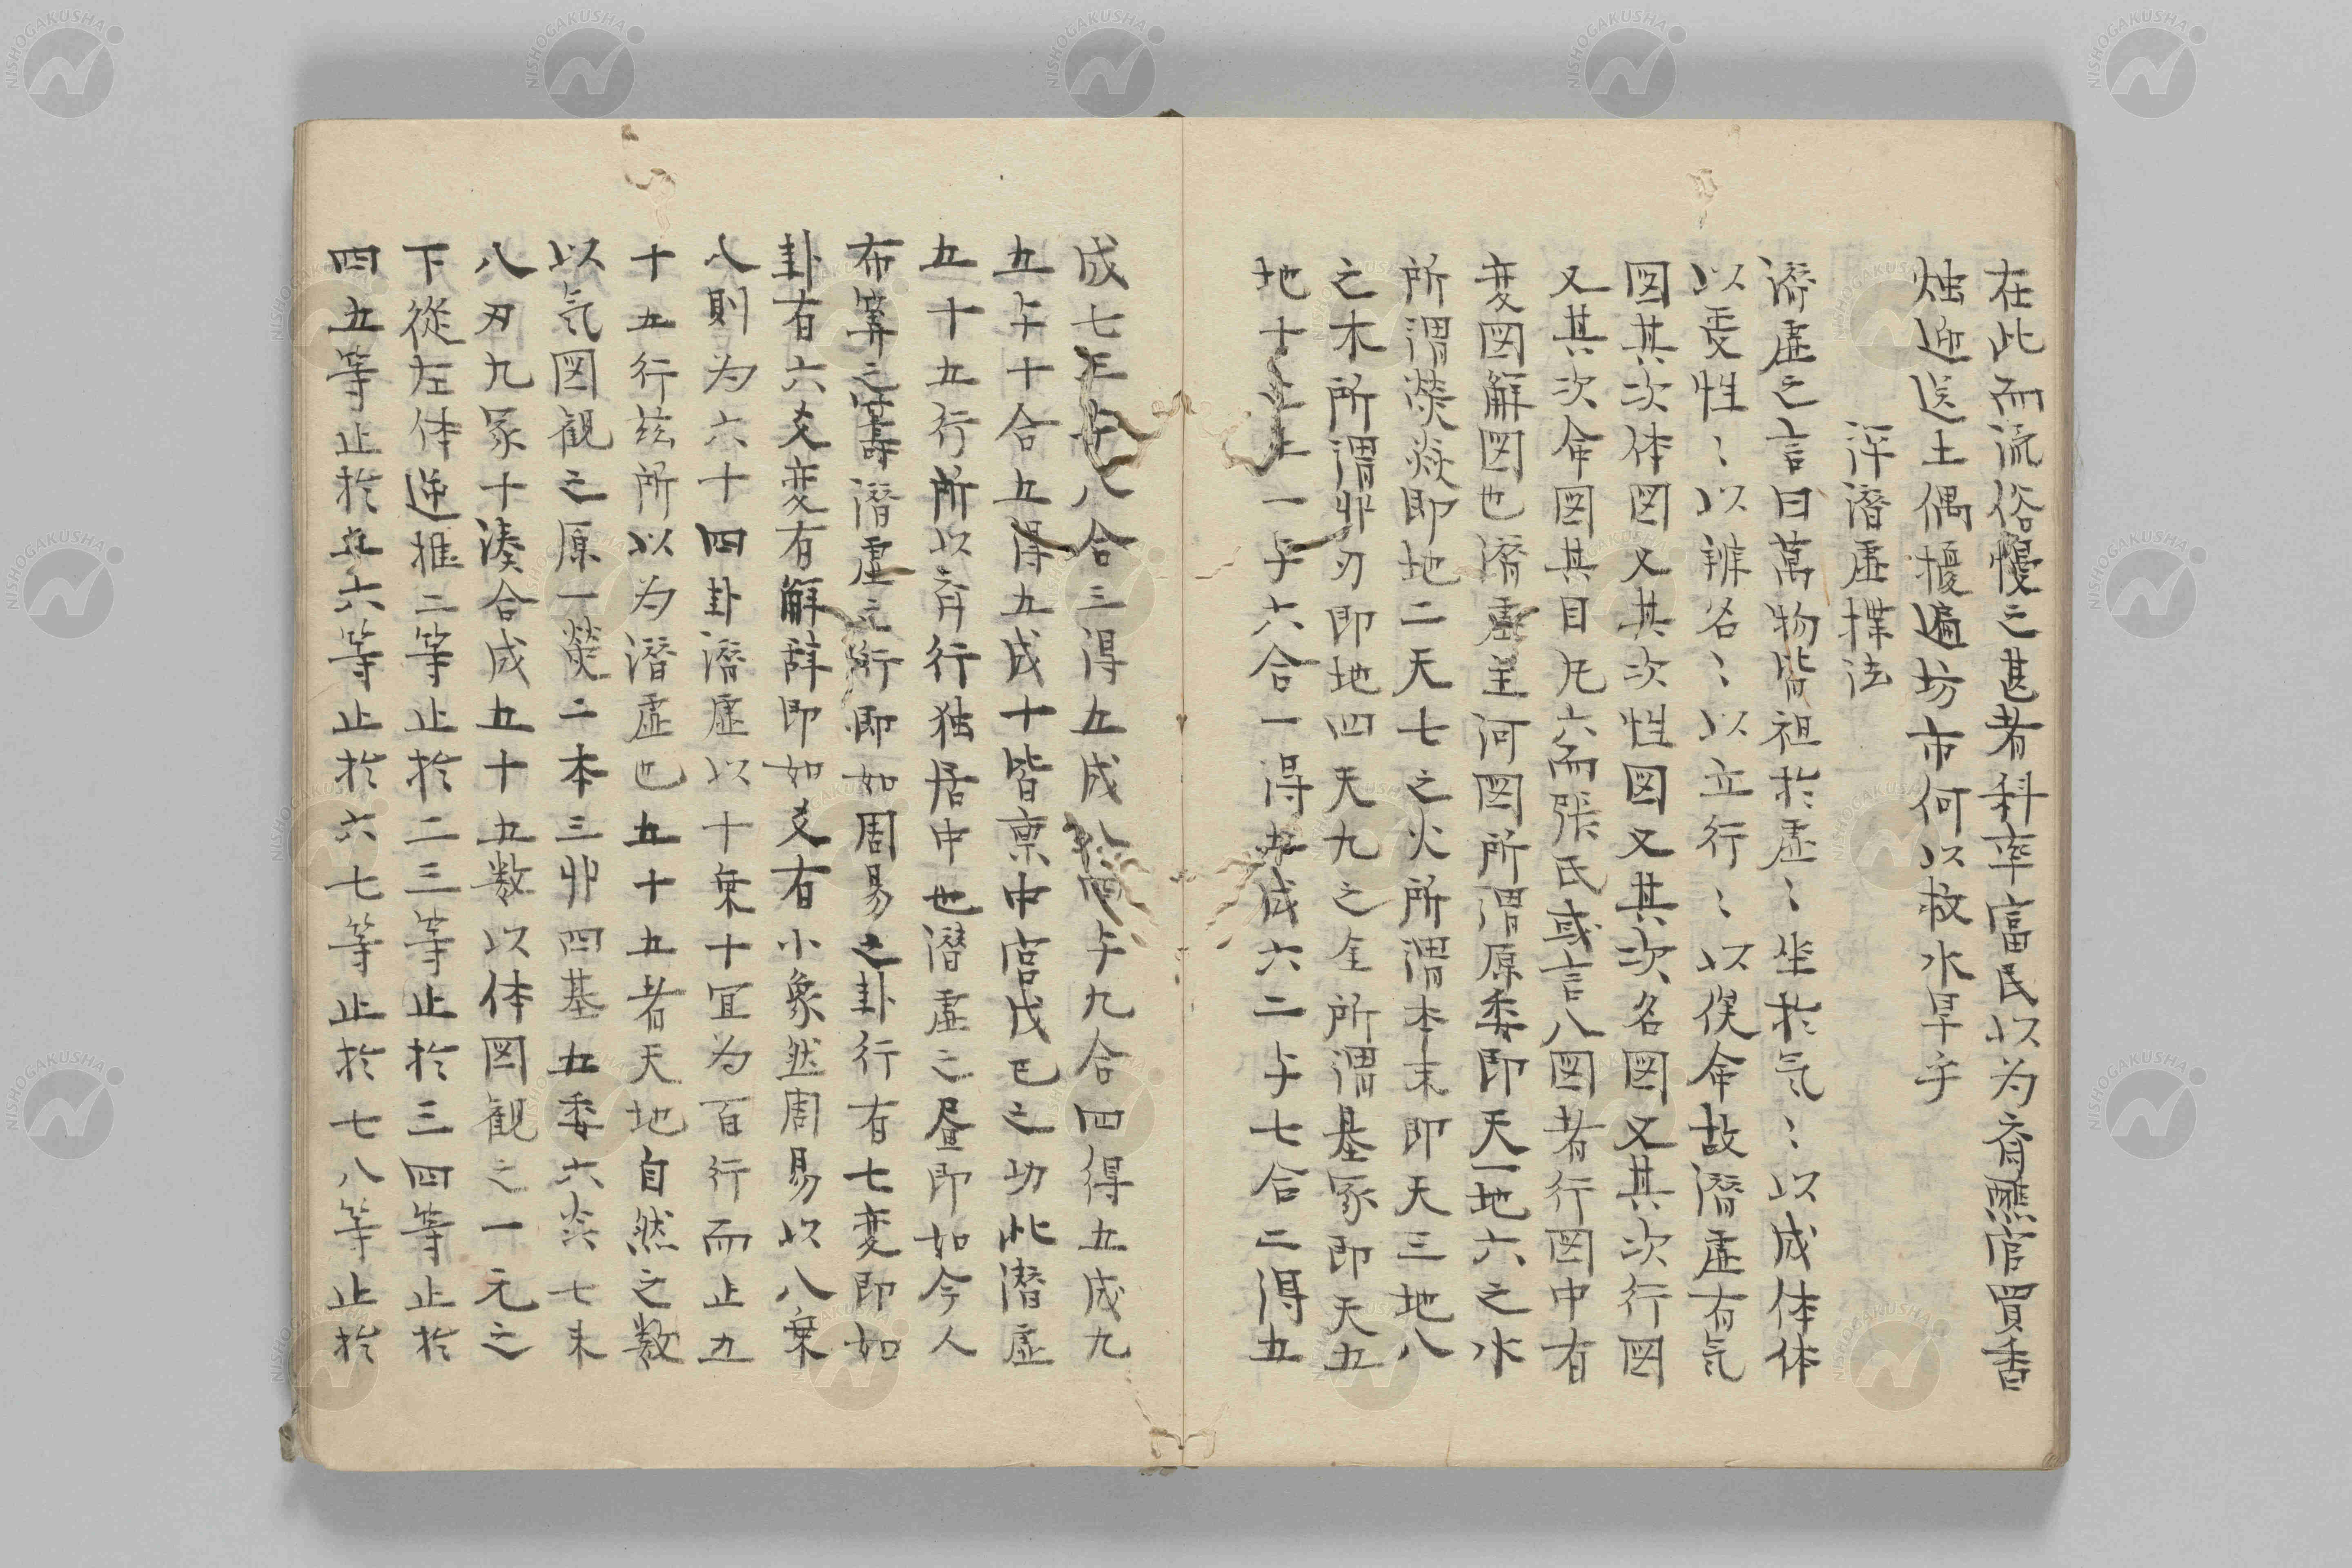 在此而流俗慢之甚者科率富民以为斎醮官買香
烛迎送土偶擾遍坊市何以救水旱乎
詳潜虚揲法
潜虚之言曰萬物皆祖於虚〻坐於気〻以成体体
以受性〻以辨名〻以立行〻以俟命故潜虚有気
図其次体図又其次性図又其次名図又其次行図
又其次命図其目凡六而張氏或言八図者行図中有
変図解図也潜虚主河図所謂原委即天一地六之水
所謂熒焱即地二天七之火所謂本末即天三地八
之木所謂丱刃即地四天九之金所謂基冢即天五
地十之土一与六合一得五成六二与七合二得五
成七三与八合三得五成八四与九合四得五成九
五与十合五得五成十皆禀中宮戊己之功此潜虚
五十五行所以斉行独居中也潜虚之昼即如今人
布筭之籌潜虚之行即如周易之卦行有七変即如
卦有六爻変有解辞即如爻有小象然周易以八乗
八則为六十四卦潜虚以十乗十宜为百行而止五
十五行玆所以为潜虚也五十五者天地自然之数
以気図観之原一熒二本三丱四基五委六焱七末
八刃九冢十湊合成五十五数以体図観之一元之
下従左体逆推二等止於二三等止於三四等止於
四五等止於五六等止於六七等止於七八等止於
NISHOGAKUSHA